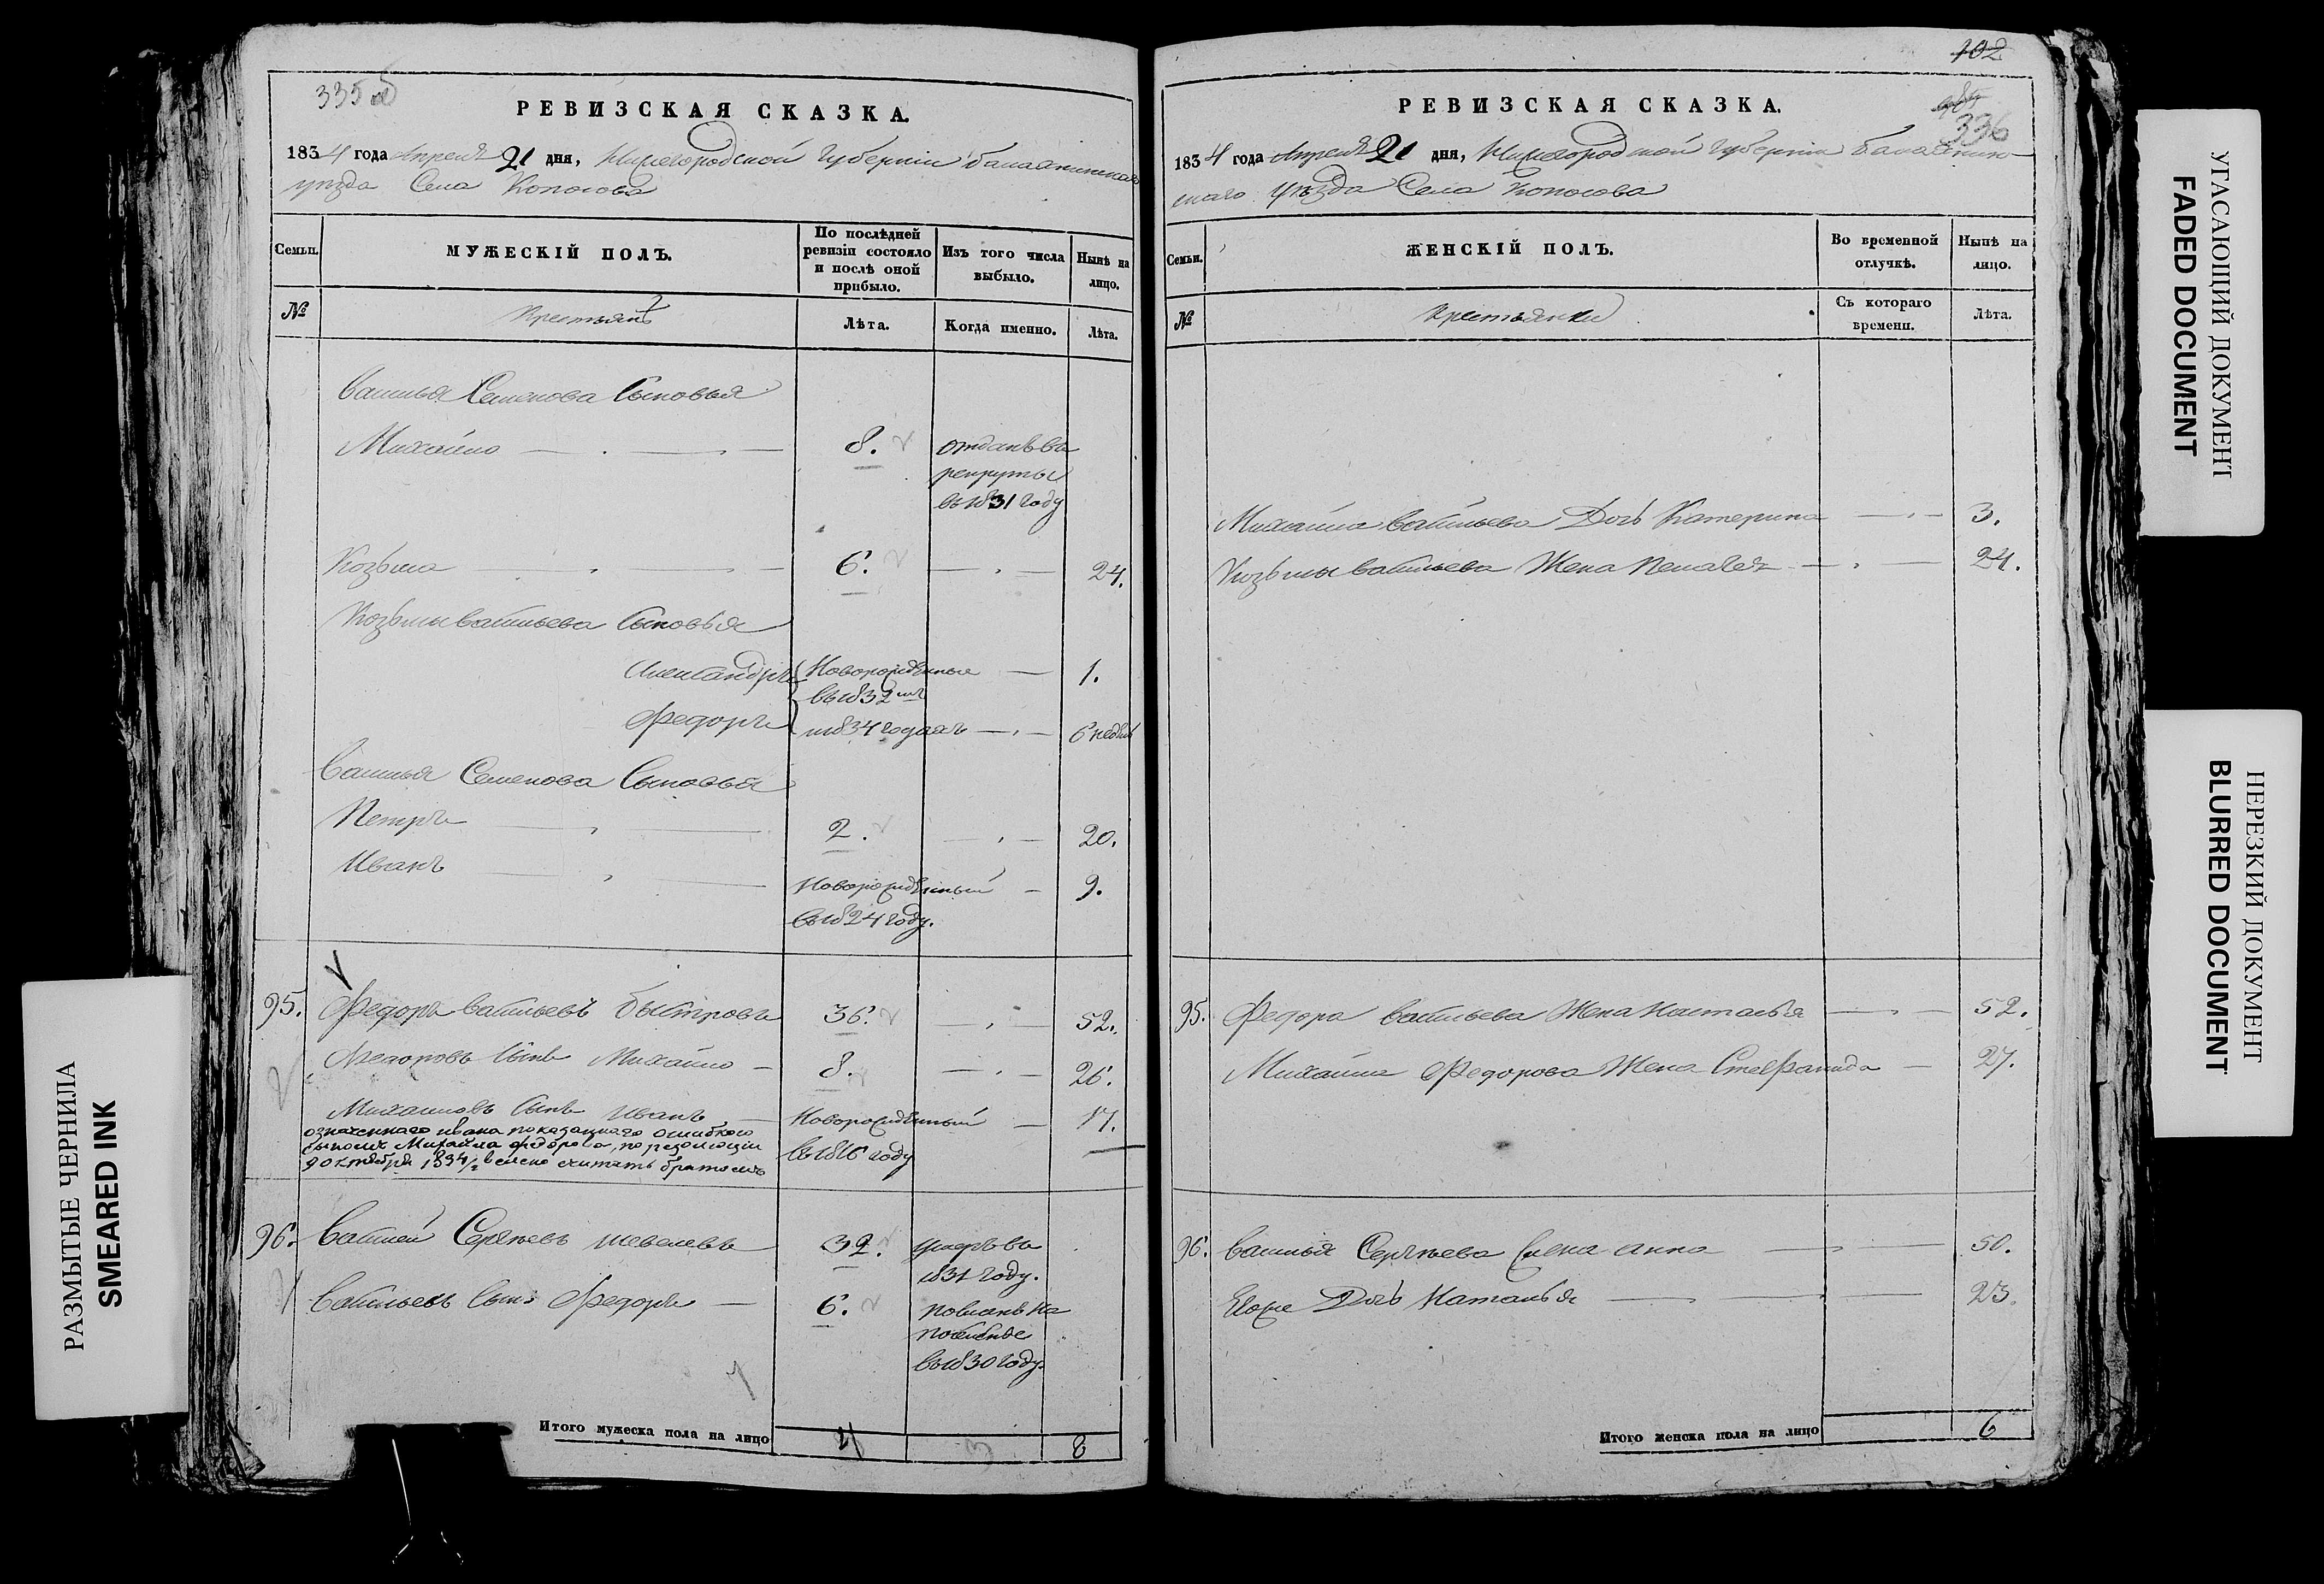 335 об
РЕВИЗСКАЯ СКАЗКА.
1834 года Апреля 21 дня, Нижегородской Губерніи Балахнинскаго
уѣзда Села Копосова
Семьи.
МУЖЕСКІЙ ПОЛЪ.
По послѣдней ревизіи состояло и послѣ оной прибыло.
Изъ того числа выбыло.
Нынѣ на лицо.
№
Крестьянъ
Лѣта.
Когда именно.
Лѣта.
Василья Семенова Сыновья
Михайло 8. отданъ въ
рекруты
въ 1831 году
Козьма 6. 24.
Козьмы Васильева Сыновья
Александръ Новорожденные 1.
въ 1832 мъ
Федоръ и 1834 годахъ 6 недѣль
Василья Семенова Сыновья
Петръ 2. 20.
Иванъ Новорожденный 9.
въ 1824 году.
95. Федоръ Васильевъ Быстровъ 36. 52.
Федоровъ Сынъ Михайло 8. 26.
Михайловъ Сынъ Иванъ Новорожденный 17.
означеннаго Ивана показаннаго ошибкою
сыномъ Михайла Федорова, по резолюціи
9 октября 1834/г велено считать братомъ
въ 1816 году
96. Василей Сергѣевъ Шевелевъ 32. умеръ въ
1831 году.
Васильевъ Сынъ Федоръ 6. посланъ на
поселеніе
въ 1830 году.
Итого мужеска пола на лицо 4 3 8
102
336
РЕВИЗСКАЯ СКАЗКА.
1834 года Апреля 21 дня, Нижегородской Губерніи Балахнин-
скаго Уѣзда Села Копосова
Семьи.
ЖЕНСКІЙ ПОЛЪ.
Во временной отлучкѣ.
Нынѣ на лицо.
№
Крестьянки
Съ котораго времени.
Лѣта.
Михайла Васильева Дочь Катерина 3.
Козьмы Васильева Жена Пелагея 24.
95. Федора Васильева Жена Настасья 52.
Михайла Федорова Жена Степанида 27.
96. Василья Сергѣева Жена Анна 50.
Егоже Дочь Наталья 23.
Итого женска пола на лицо 6
УГАСАЮЩИЙ ДОКУМЕНТ
FADED DOCUMENT
НЕРЕЗКИЙ ДОКУМЕНТ
BLURRED DOCUMENT
РАЗМЫТЫЕ ЧЕРНИЛА
SMEARED INK